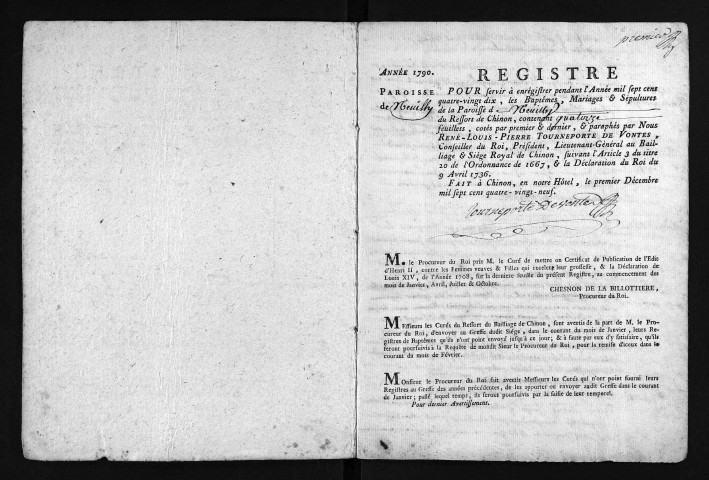 premier
ANNÉE 1790.
PAROISSE
de Neuilly
REGISTRE
POUR servir à enrégistrer pendant l'Année mil sept cens
quatre-vingt dix, les Baptêmes, Mariages & Sépultures
de la Paroisse d e Neuilly
du Ressort de Chinon, contenant quatorze
feuillets, cotés par premier & dernier, & paraphés par Nous
RENÉ-LOUIS-PIERRE TOURNEPORTE DE VONTES,
Conseiller du Roi, Président, Lieutenant-Général au Bail-
liage & Siége Royal de Chinon, suivant l'Article 3 du titre
20 de l'Ordonnance de 1667, & la Déclaration du Roi du
9 Avril 1736.
FAIT à Chinon, en notre Hôtel, le premier Décembre
mil sept cens quatre-vingt-neuf.
Tourneporte Devontes
M. le Procureur du Roi prie M. le Curé de mettre un Certificat de Publication de l'Edit
d'Henri II, contre les Femmes veuves & Filles qui recelent leur grossesse, & la Déclaration de
Louis XIV, de l'Année 1708, sur la derniere feuille du présent Registre, au commencement des
mois de Janvier, Avril, Juillet & Octobre.
CHESNON DE LA BILLOTTIERE,
Procureur du Roi.
Messieurs les Curés du Ressort du Bailliage de Chinon, sont avertis de la part de M. le Pro-
cureur du Roi, d'envoyer au Greffe dudit Siége, dans le courant du mois de Janvier, leurs Re-
gistres de Baptêmes qu'ils n'ont point envoyé jusqu'à ce jour; & à faute par eux d'y satisfaire, qu'ils
seront poursuivis à la Requête de mondit Sieur le Procureur du Roi, pour la remise d'iceux dans le
courant du mois de Février.
Monsieur le Procureur du Roi fait avertir Messieurs les Curés qui n'ont point fourni leurs
Registres au Greffe des années précédentes, de les apporter ou envoyer audit Greffe dans le courant
de Janvier; passé lequel temps, ils seront poursuivis par la saisie de leur temporel.
Pour dernier Avertissement.